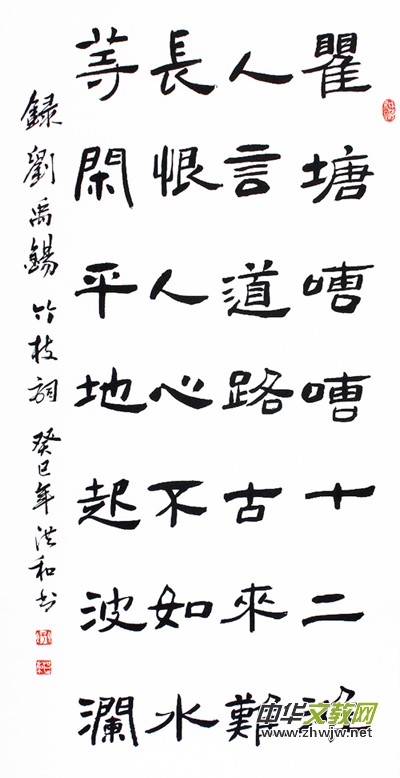 瞿塘嘈嘈十二
人言道路古來難
長恨人心不如水
等閑平地起波瀾
録劉禹錫竹枝詞 癸巳年洪和书
中华文教网
www.zhwjw.net